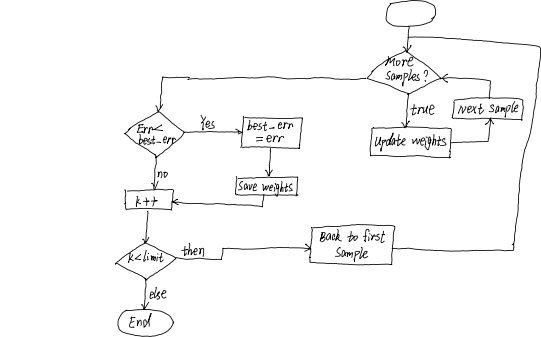 More
samples?
true
Next sample
Update weights
Err<
best_err
Yes
best_err
=err
no
Save weights
k++
k<limit
then
Back to first
Sample
else
End